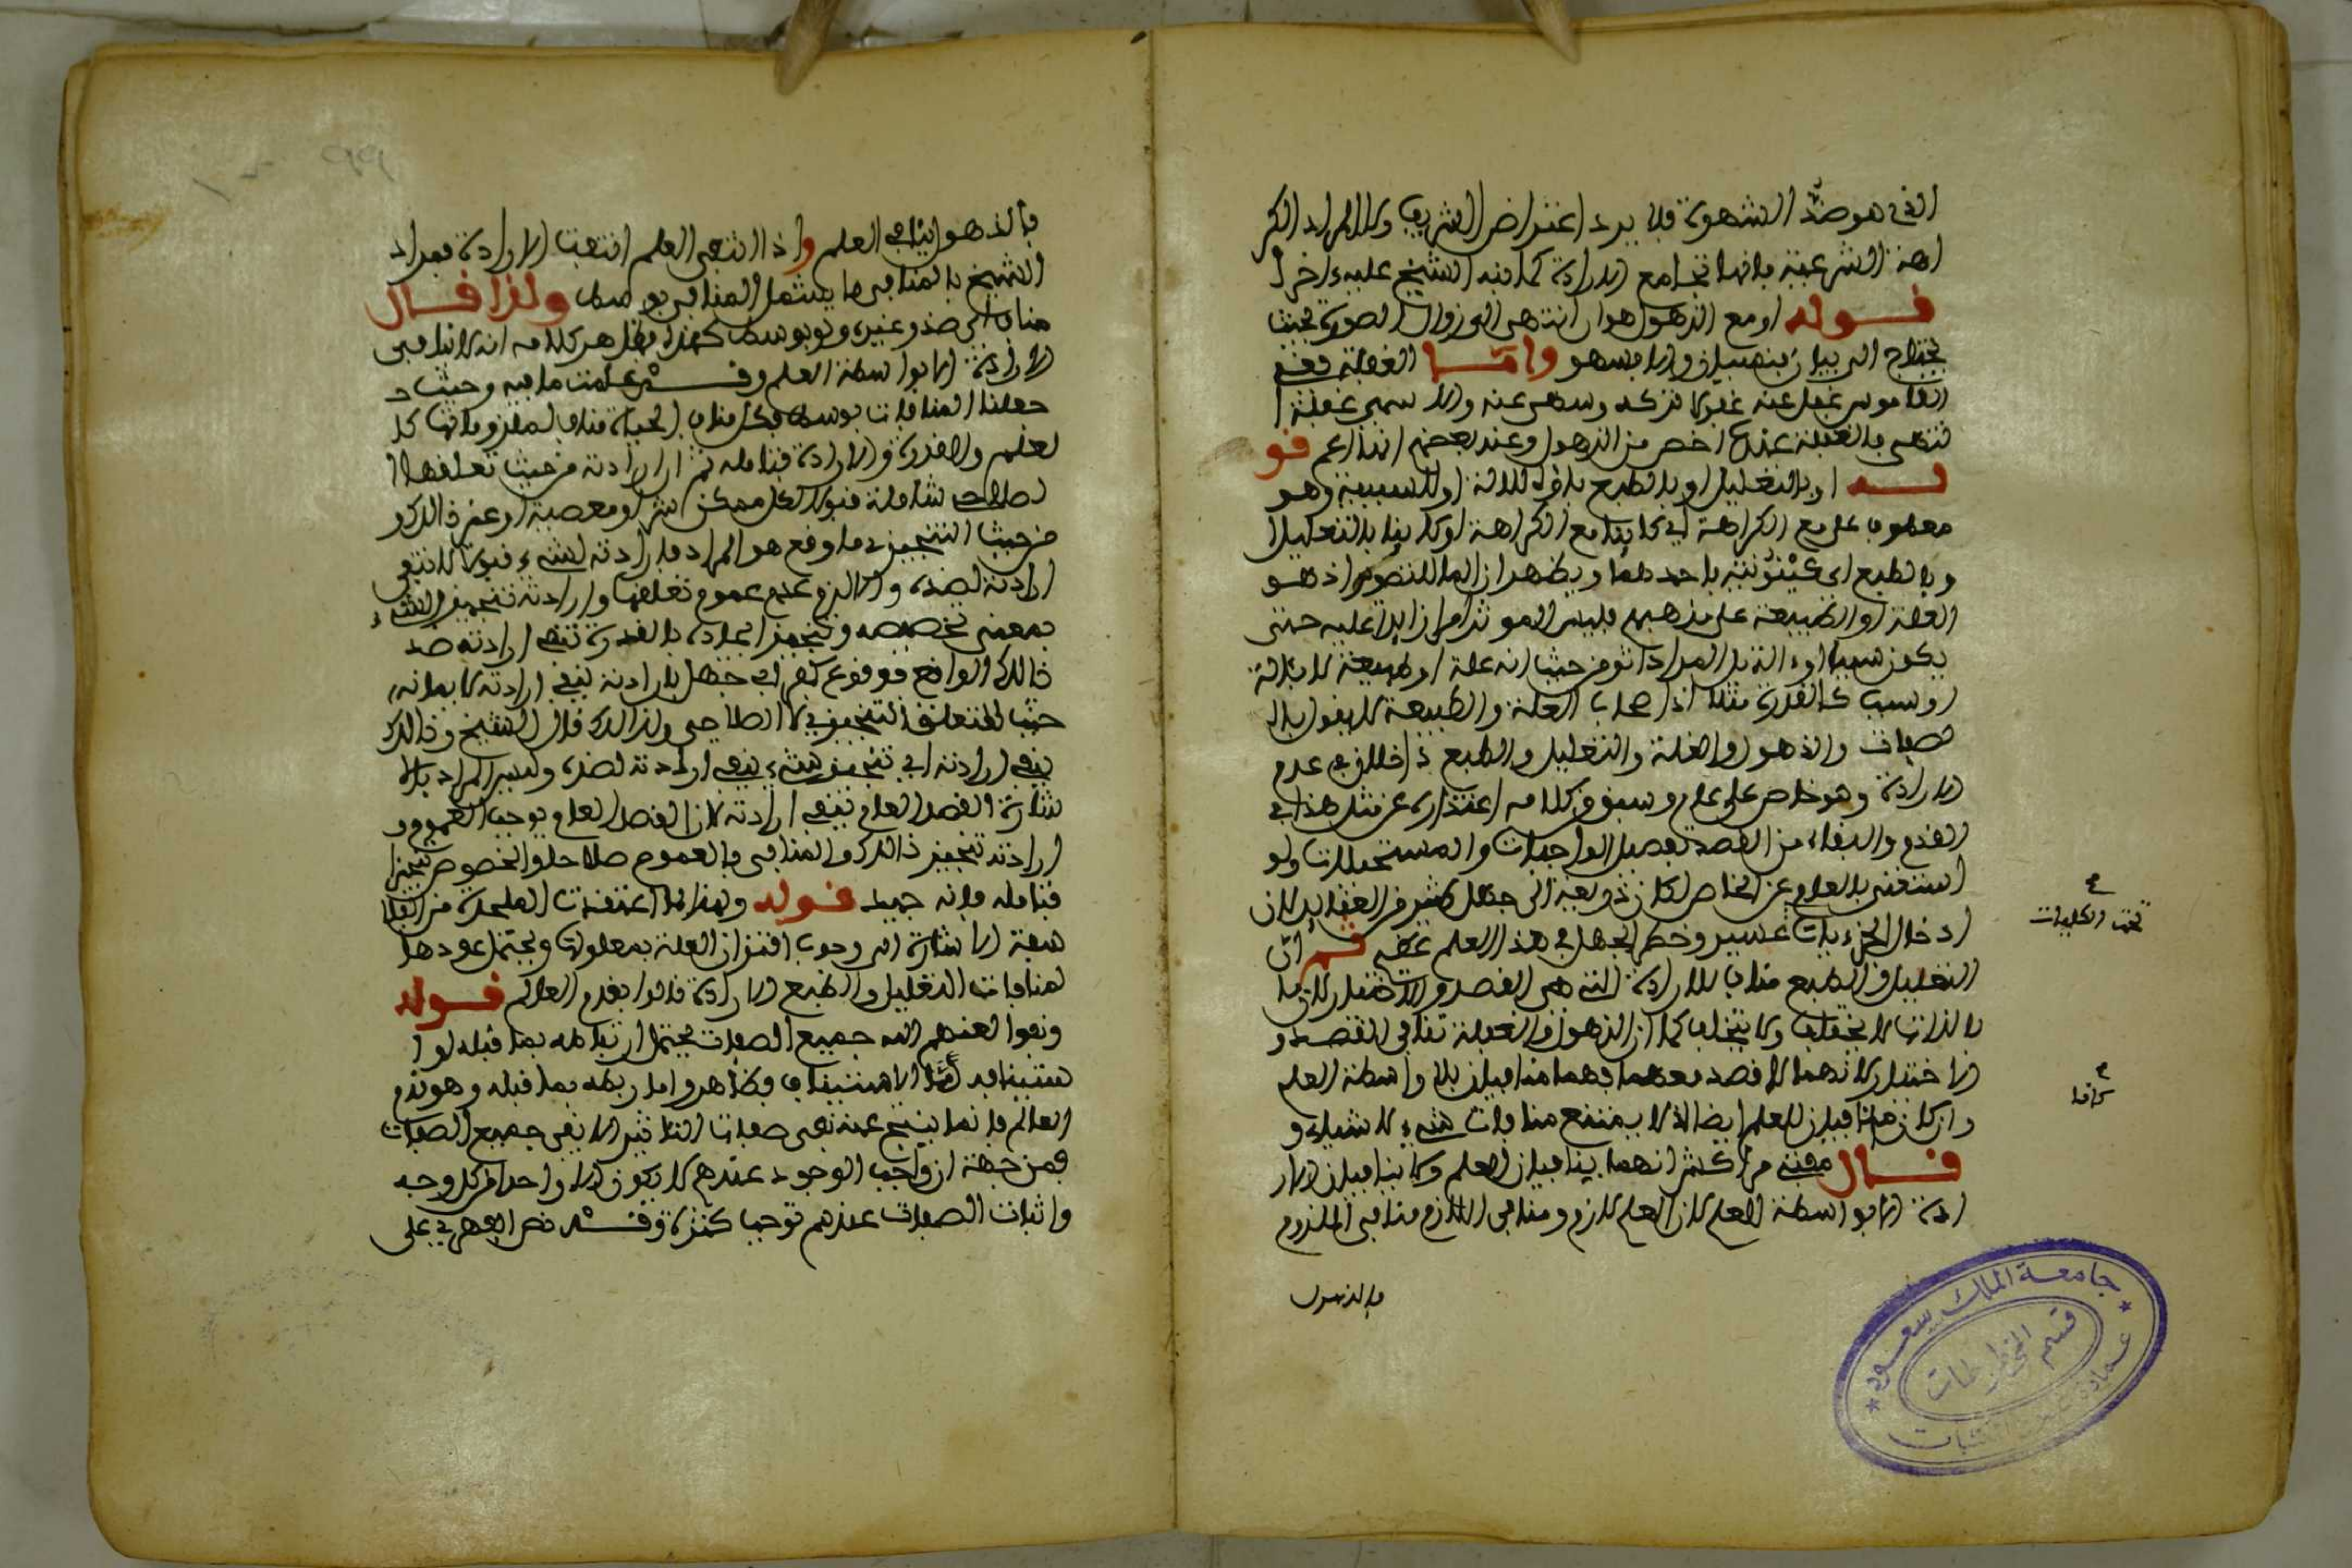 الذي هو ضد الشهوة فلا يرد اعتراض الشريف ولا المراد الكر
اهة الشرعية فانها تجامع الارادة كما نبه الشيخ عليه ءاخرا
قوله او مع الذهول هوان انتهى الى زوال الصورة بحيث
يحتاج الى بيان فنسيان والا فسهو واما الغفلة ففي
القاموس غفل عنه غفولا تركه وسهى عنه والاسم غفلة ا
نتهى فالغفلة عنده اخص من الذهول وعند بعضهم انها اعم قو
له او بالتعليل او بالطبع باؤه للالة او للسببية وهو
معطوف على مع الكراهة اي لا يقا مع الكراهة او كايقا بالتعليل ا
و بالطبع اي باحدهما ويظهر ان الباء للتصوير اذ هو
العلة او الطبيعة على مذهبهم فليس الموثر امرا زايدا عليه حتى
يكون سببا او ءالة بل المراد اثر من حيث انه علة او طبيعة لا بالة
او سبب كالقدرة مثلا اذ اصحاب العلة والطبيعة لا يقولون بال
صفات والذهول والغفلة والتعليل والطبع داخلان في عدم
الارادة وهو خاص على عام وسبق في كلامه اعتذاره عن مثل هذا في
القدم والبقاء من القصد تفصيل الواجبات والمستحيلات ولو
استغنى بالعام عن الخاص لكان ذريعة الى جهل كثير من العقايد لان
ادخال الجزءيات عسير وخطر الجهل في هذا العلم عظيم ثم ان
تحت الكليات
التعليل والطبع مناف للارادة التي هي القصد والاختيار لان ما
بالذات لا يختلف ولا يتخلف كما ان الذهول والغفلة تنافي القصد و
الاختيار لانهما لا قصد معهما فهما منافيان بلا واسطة العلم
وان كانا منافيان للعلم ايضا اذ لا يمتنع منافات شيء لاشياء و
قال مقتضى مراكشي انهما ينافيان العلم ولا ينافيان الار
ادة الا بواسطة العلم لان العلم لازم ومنافي اللازم منافي الملزوم
فالذهول
فالذهول ينافي العلم واذا انتفى العلم انتفت الارادة فمراد
الشيخ بالمنافي ما يشمل المنافي بوسط ولذا قال
مناف اي ضد وغيره ولو بوسط كهذا فظاهر كلامه انه لا ينافي
الارادة الا بواسطة العلم وقد علمت ما فيه وحيث
جعلنا المنافات بوسط فكل مناف الحياة مناف لملزوماتها كا
لعلم والقدرة والارادة فتامله ثم ان ارادته من حيث تعلقها ا
لصلاحي شاملة قبولا لكل ممكن شر او معصية او غير ذالك و
من حيث التنجيزي ما وقع هو المراد فارادته لشيء قبولا لا تنفي
ارادته لضده والا لزم عدم عموم تعلقها وارادته تنجيز الشيء
بمعنى تخصيصه وتنجيز ايجاده بالقدرة تنفي ارادته ضد
ذالك الواقع فوقوع كفر ابي جهل بارادته ينفي ارادته لايمانه
حيث المتعلق التنجيزي لا الصلاحي ولذالك قال الشيخ وذالك
ينفي ارادته اي تنجيز شيء ينفي ارادته لضده وليس المراد بالا
شارة القصد العام تنفي ارادته لان القصد العام يوجب العموم و
ارادته تنجيز ذالك والمنافي فالعموم صلاحا والخصوص تنجيزا
فتامله فانه جيد قوله ولهذا لما اعتقدت الملحدة من الفلا
سفة الاشارة الى وجوب اقتران العلة بمعلولها ويحتمل عودها
لمنافات التعليل والطبع الارادة قالوا بقدم العالم قوله
ونفوا لعنهم الله جميع الصفات يحتمل ارتباطه بما قبله او ا
ستينافه اما الاستيناف فظاهر واما ربطه بما قبله وهو قدم
العالم فانما ينتج عنه نفي صفات التاثير لا نفي جميع الصفات
فمن جهة ان واجب الوجود عندهم لا يكون الا واحدا من كل وجه
واثبات الصفات عندهم توجب كثرة وقد نص الفهري على
جامعة الملك سعود
قسم المخطوطات
عمادة شؤون المكتبات